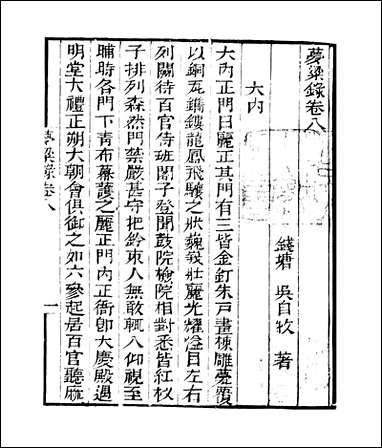 夢粱錄卷八
錢塘 吳自牧 著
大内
大内正門曰麗正其門有三皆金釘朱戸畫棟雕甍覆
以銅瓦鐫鏤龍鳳飛驤之狀巍峩壯麗光耀溢目左右
列闕待百官侍班閣子登聞鼓院檢院相對悉皆紅杈
子排列森然門禁嚴甚守把鈐束人無敢輒入仰視至
晡時各門下青布幕護之麗正門内正衙卽大慶殿遇
明堂大禮正朔大朝會俱御之如六參起居百官聽麻
夢粱錄卷八
一